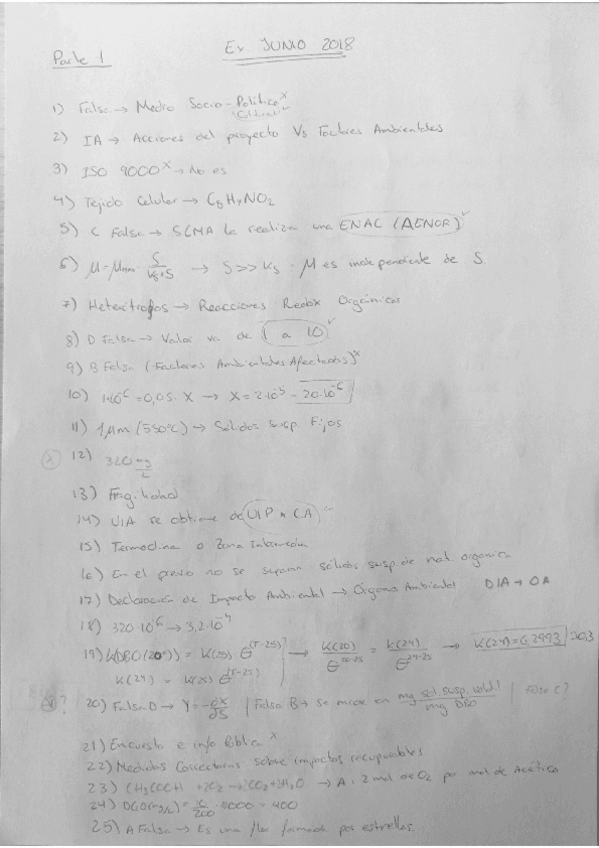 Ex JUNIO 2018
Parte 1
1) Falsa → Medio Socio-Político x
(Cultural) ✓
2) IA → Acciones del proyecto Vs Factores Ambientales
3) ISO 9000 x → No es
4) Tejido Celular → C5H7NO2
5) C Falsa → SGMA la realiza una ENAC (AENOR) ✓
6) μ = μmax S/(Ks+S) → S >> Ks . μ es independiente de S.
7) Heterótrofos → Reacciones Redox Orgánicas
8) D Falsa → Valor va de 1 a 10 ✓
9) B Falsa (Factores Ambientales Afectados) x
10) 1·10^-6 = 0,05 · X → X = 2·10^-5 = 20·10^-6
11) 1μm (550ºC) → Sólidos Susp. Fijos
12) 320 mg/L
13) Fragilidad
14) UIA se obtiene de UIP x CA
15) Termoclina o Zona Intermedia
16) En el previo no se separan sólidos susp. de mat. orgánica
17) Declaración de Impacto Ambiental → Órgano Ambiental DIA → OA
18) 320·10^-6 → 3,2·10^-4
19) KDBO(20º) = K(25) θ^(T-25) → K(20)/θ^20-25 = K(24)/θ^24-25 → K(24) = 0,2993 / 20,3
K(24) = K(25) θ^(T-25)
? 20) Falsa D → Y = -dX/dS | Falsa B → se mide en mg sol. susp. volát./mg DBO | Falsa C?
21) Encuesta e info Bíblica x
22) Medidas Correctoras sobre impactos recuperables
23) CH3COOH + 2O2 → 2CO2 + 2H2O → A: 2 mol de O2 por mol de Acético
24) DQO (mg/L) = /200 · 8000 = 400
25) A Falsa → Es una flor formada por estrellas.